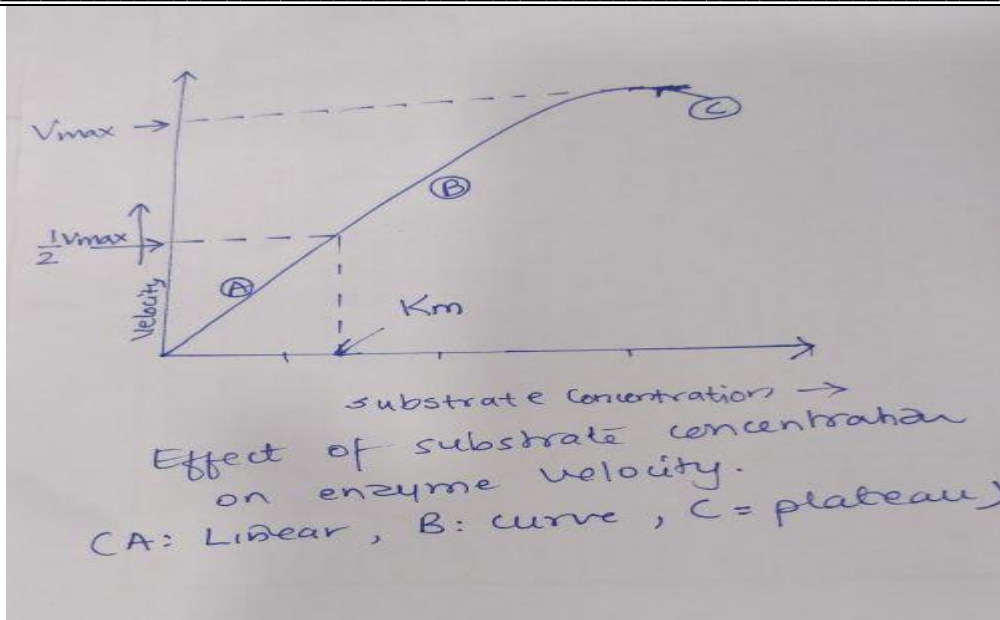 Vmax →
C
B
1/2 Vmax
A
Velocity
Km
substrate concentration →
Effect of substrate concentration
on enzyme velocity.
(A: Linear, B: curve, C = plateau)